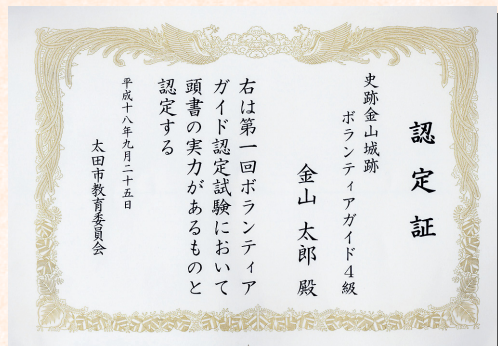 認定証
史跡金山城跡
ボランティアガイド4級
金山 太郎 殿
右は第一回ボランティア
ガイド認定試験において
頭書の実力があるものと
認定する
平成十八年九月二十五日
太田市教育委員会